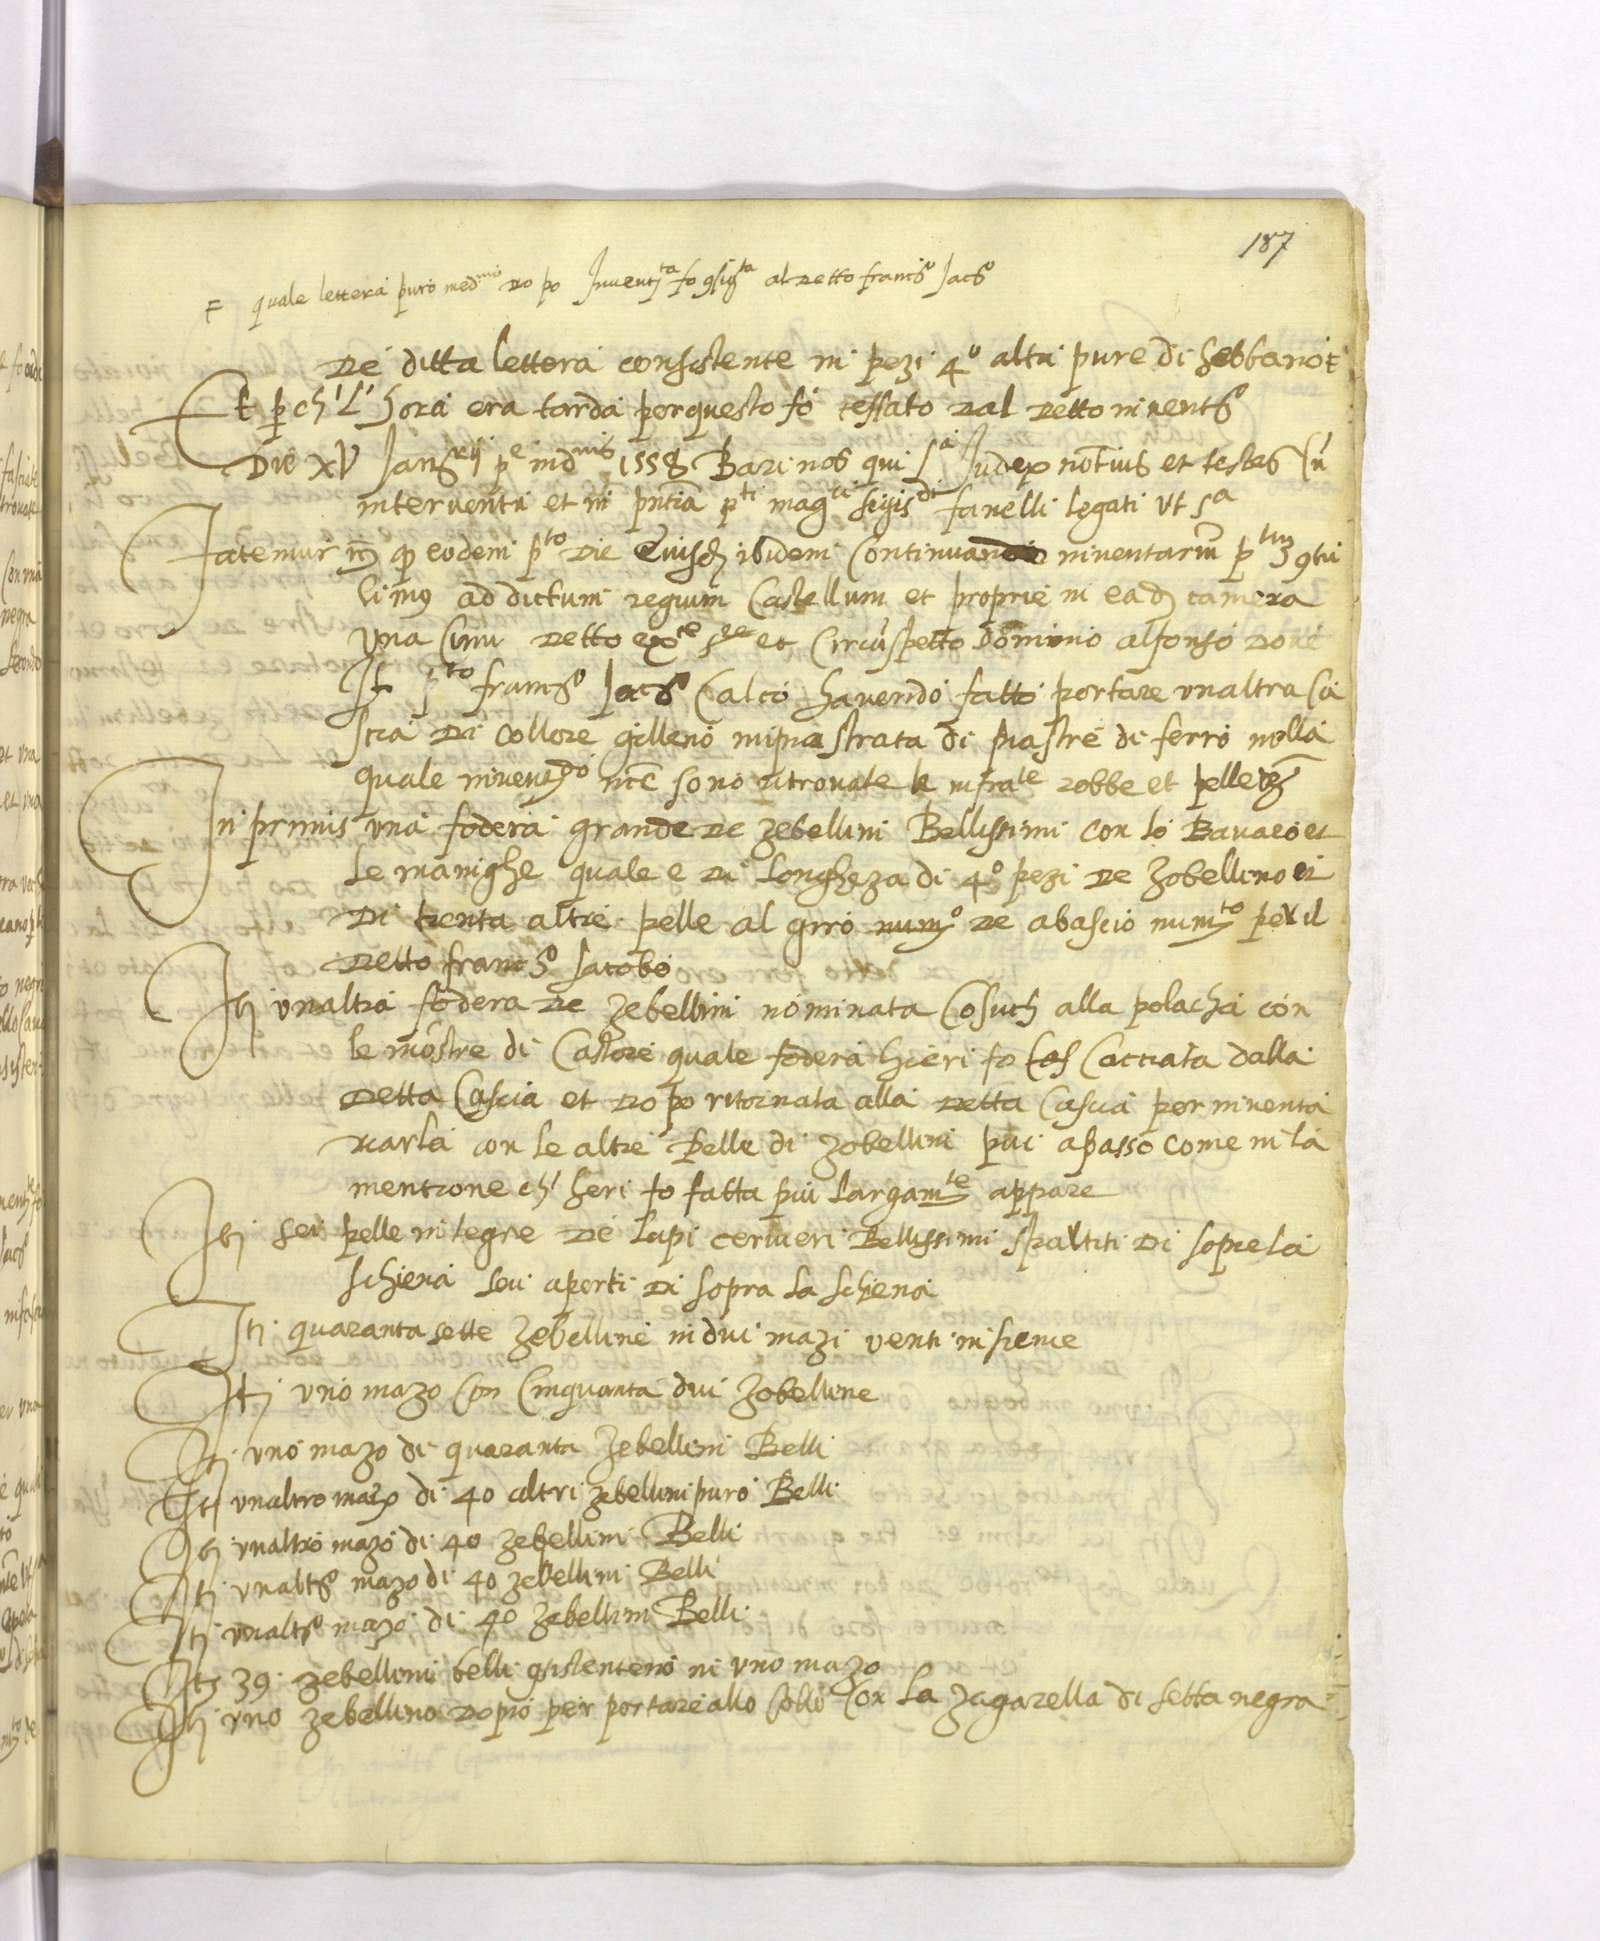 187
F quale lettera puro med^mo dopo Invent^ta fo 9sig^ta al detto franc^o Jac^o
De ditta lettera consistente in pezi 4^o altri pure di Sebbano et
Et p ch' l' hora era tarda per questo fo cessato dal detto invent^o
Die XV Jan^rij p^e ind^nis 1558 Bari nos qui s^a Judex notius et testes Cū
interventū et in pntia p^ti mag^ci sigis^di fanelli legati ut s^a
fatemur q eodem p^to Die Eiusd ibidem Continuando inventariū p^tum 9tu
limus ad dictum regium Castellum et proprie in ead camera
una Cum detto ex^te et Circūspetto Domino alfonso dove
It p^to franc^o Jac^o Calco havendo fatto portare unaltra Ca
scia di collore gilleno inpiastrata di piastre di ferro nella
quale invent^do nce sono ritrovate le infra^te robbe et pelle vz
In primis una fodera grande de zebellini Bellissimi con lo Bavaro et
le manighe quale e di longheza di 4^o pezi de zobellino et
di trenta altre pelle al giro num^o de abascio num^to per il
detto franc^o Jacobo
Iti unaltra fodera de zebellini nominata Cosuch alla polacha con
le mostre di Castore quale fodera hieri fo Cacciata dalla
detta Cascia et dopo ritornata alla detta Cascia per inventa
riarla con le altre Pelle di zobellini piu abasso come in la
mentione ch' heri fo fatta piu largam^te appare
Iti sei pelle integre de lupi cervieri Bellissimi spaltiti di sopre la
schiena sevi aperti di sopra la schiena
Iti quaranta sette zebelline in dui mazi venti insieme
Iti uno mazo Con Cinquanta dui zobelline
Iti uno mazo di quaranta zebellini Belli
Iti unaltro mazo di 40 altri zebellini puro Belli
Iti unaltro mazo di 40 zebellini Belli
Iti unaltro mazo di 40 zebellini Belli
Iti unaltro mazo di 40 zebellini Belli
Iti 39 zebellini belli 9sistenteno in uno mazo
Iti uno zebellino dopio per portare allo Collo Con la zagarella di setta negra